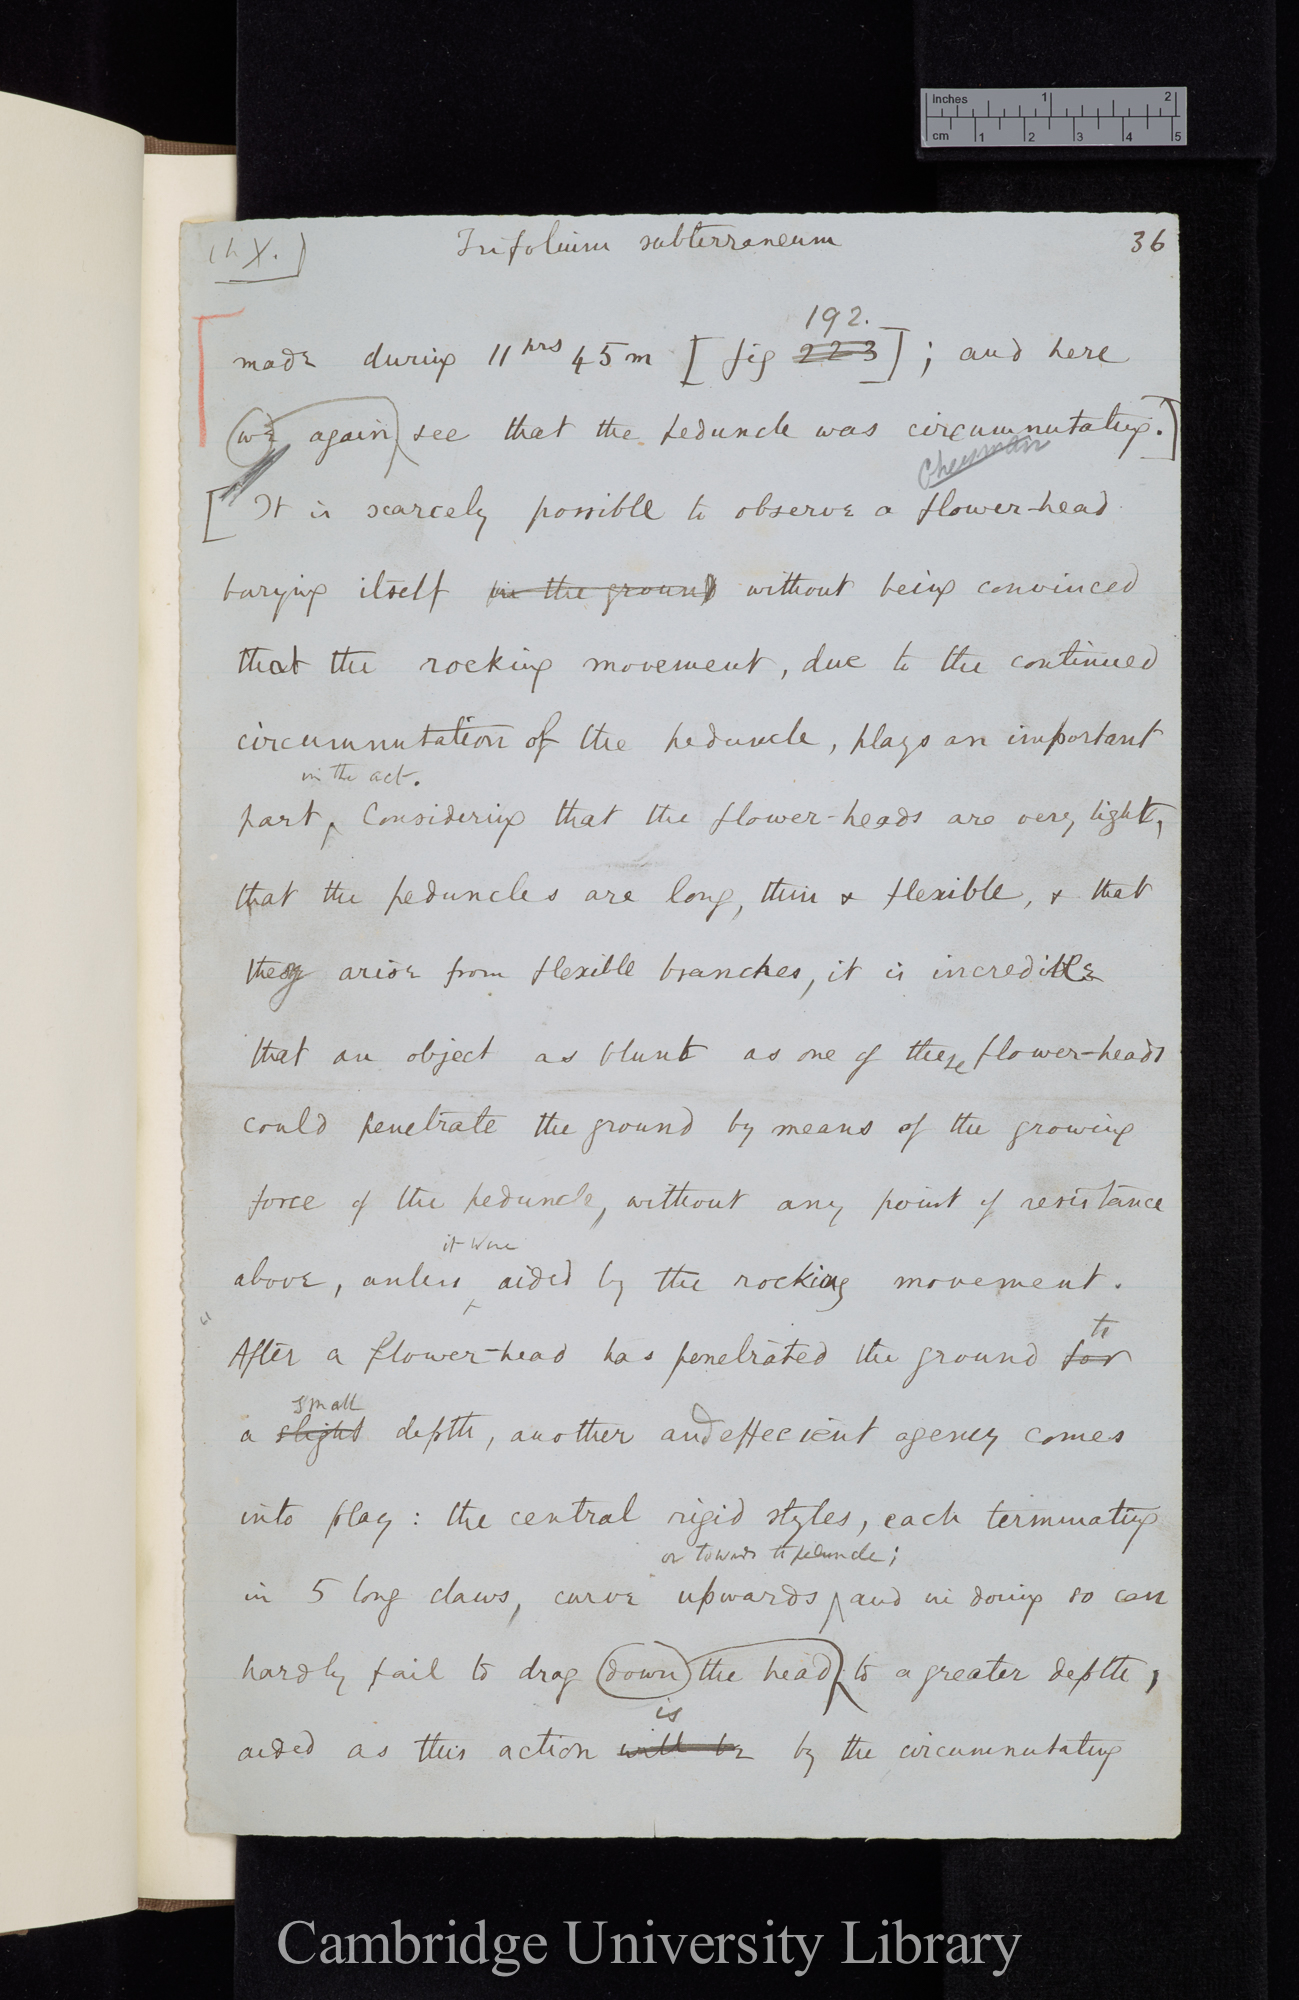 Inches 1 2
cm 1 2 3 4 5
Ch X.) Trifolium subterraneum 36
192.
made during 11 hrs 45 m [fig 223]; and here
we again see that the peduncle was circumnutating.]
Cheesman
[It is scarcely possible to observe a flower-head
burying itself in the ground without being convinced
that the rocking movement, due to the continued
circumnutation of the peduncle, plays an important
in the act.
part, Considering that the flower-heads are very light,
that the peduncles are long, thin & flexible, & that
they arise from flexible branches, it is incredible
that an object as blunt as one of these flower-heads
could penetrate the ground by means of the growing
force of the peduncle, without any point of resistance
it were
above, unless aided by the rocking movement.
to
After a flower-head has penetrated the ground for
small
a slight depth, another and effecient agency comes
into play: the central rigid styles, each terminating
or towards the peduncle;
in 5 long claws, curve upwards and in doing so can
hardly fail to drag down the head to a greater depth,
is
aided as this action will be by the circumnutating
Cambridge University Library